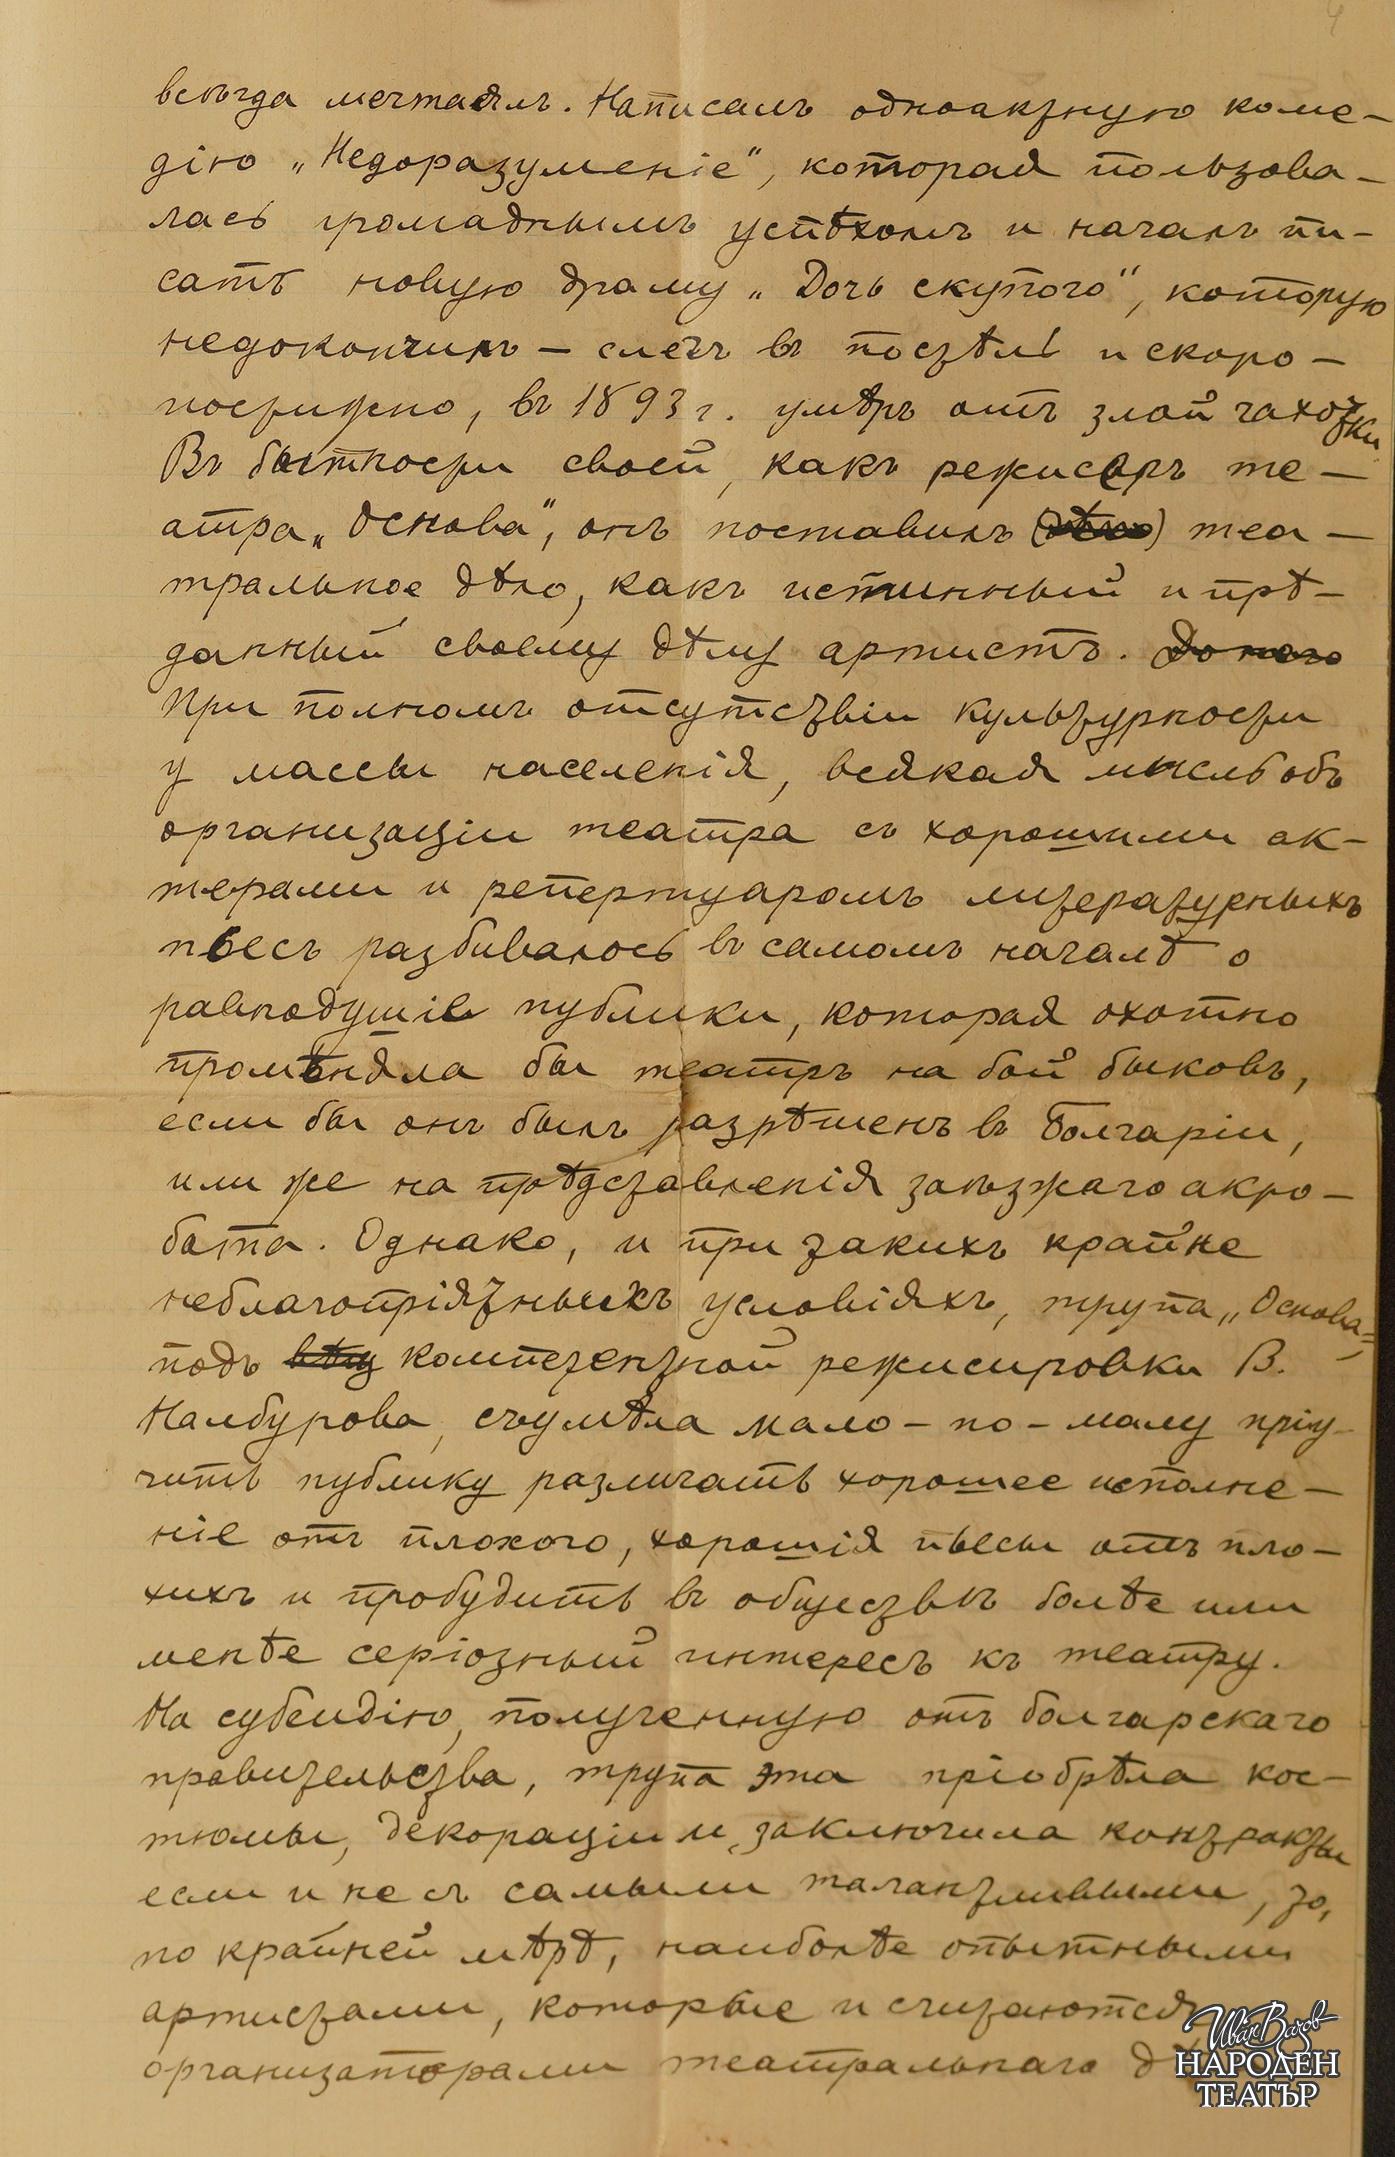 всегда мечталъ. Написалъ одноактную коме-
дію „Недоразуменіе", которая пользова-
лась громаднымъ успѣхомъ и началъ пи-
сать новую драму „Дочь скупого", которую
недокончилъ – слегъ въ постѣль и скоро-
постижно, въ 1893 г. умѣръ отъ злой чахотки
Въ бытности своей, какъ режисеръ те-
атра „Основа", онъ поставилъ (дѣло) теа-
тральное дѣло, какъ истинный и прѣ-
данный своему дѣлу артистъ. До него
При полномъ отсутствіи культурности
у массы населенія, всякая мысль объ
организаціи театра съ хорошими ак-
терами и репертуаромъ литературныхъ
пьесъ разбивалось въ самомъ началѣ о
равнодушіе публики, которая охотно
промѣняла бы театръ на бой быковъ,
если бы онъ былъ разрѣшенъ въ Болгаріи,
или же на прѣдставленія заѣзжаго акро-
бата. Однако, и при такихъ крайне
неблагопріятныхъ условіяхъ, трупа „Основа",
подъ компетентной режисировки В.
Налбурова, съумѣла мало-по-малу пріу-
чить публику различать хорошее исполне-
ніе отъ плохого, хорошія пьесы отъ пло-
хихъ и пробудить въ обществѣ болѣе или
менѣе серіозный интересъ къ театру.
На субсидію, полученную отъ болгарскаго
правительства, трупа эта пріобрѣла кос-
тюмы, декораціи и заключила контракты
если и не съ самыми талантливыми, то,
по крайней мѣрѣ, наиболѣе опытными
артистами, которые и считаются
организаторами театральнаго
Иван Вазов
НАРОДЕН
ТЕАТЪР